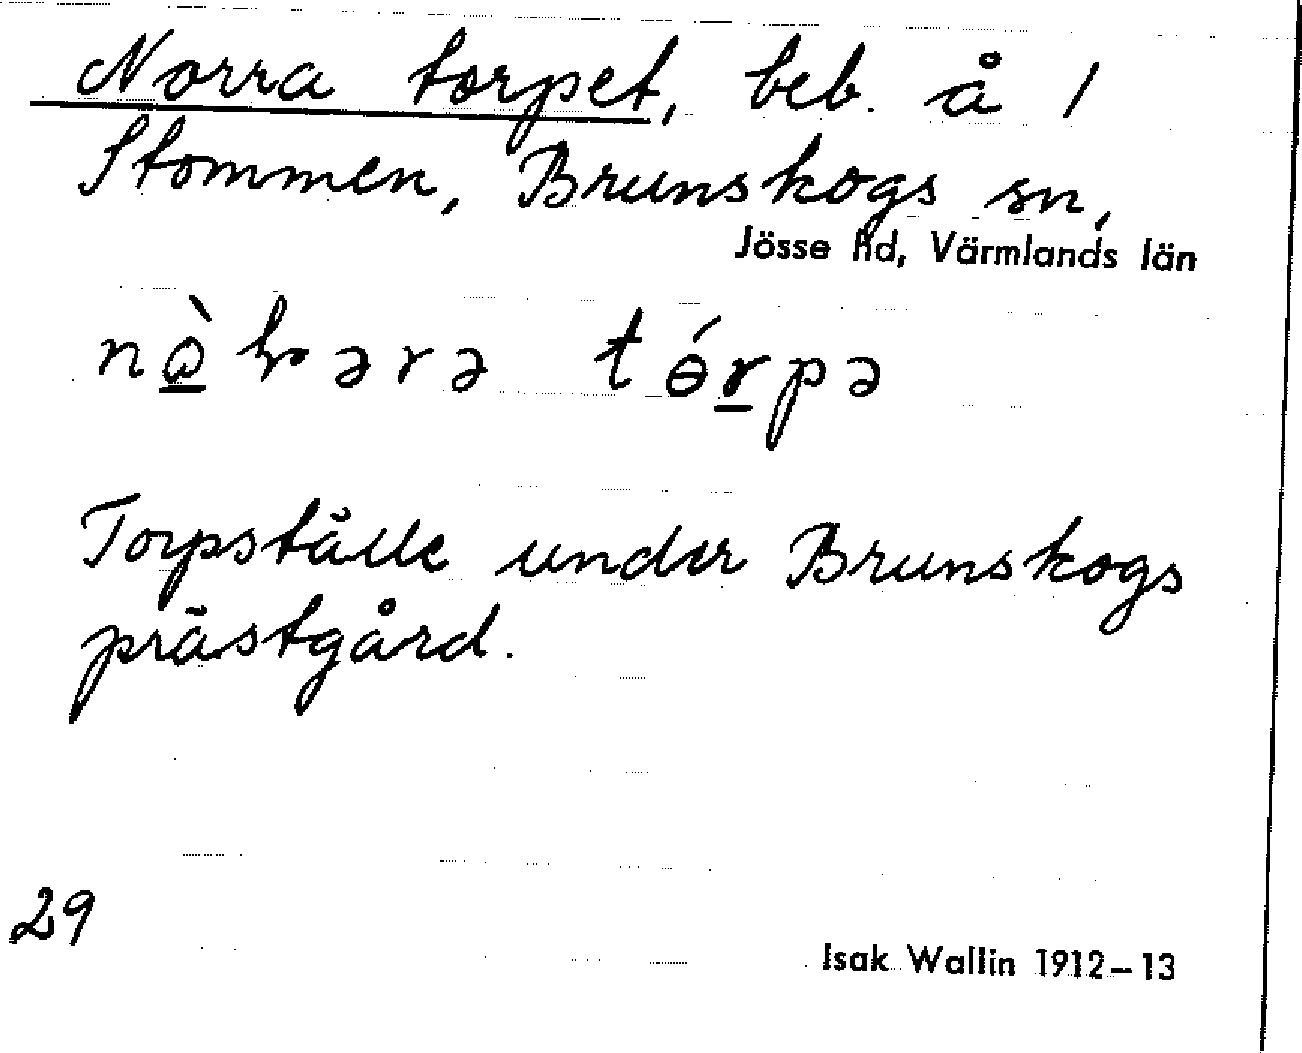 Norra torpet, beb. å 1
Stommen, Brunskogs sn,
Jösse hd, Värmlands län
Torpställe under Brunskogs
prästgård.
29
Isak Wallin 1912–13